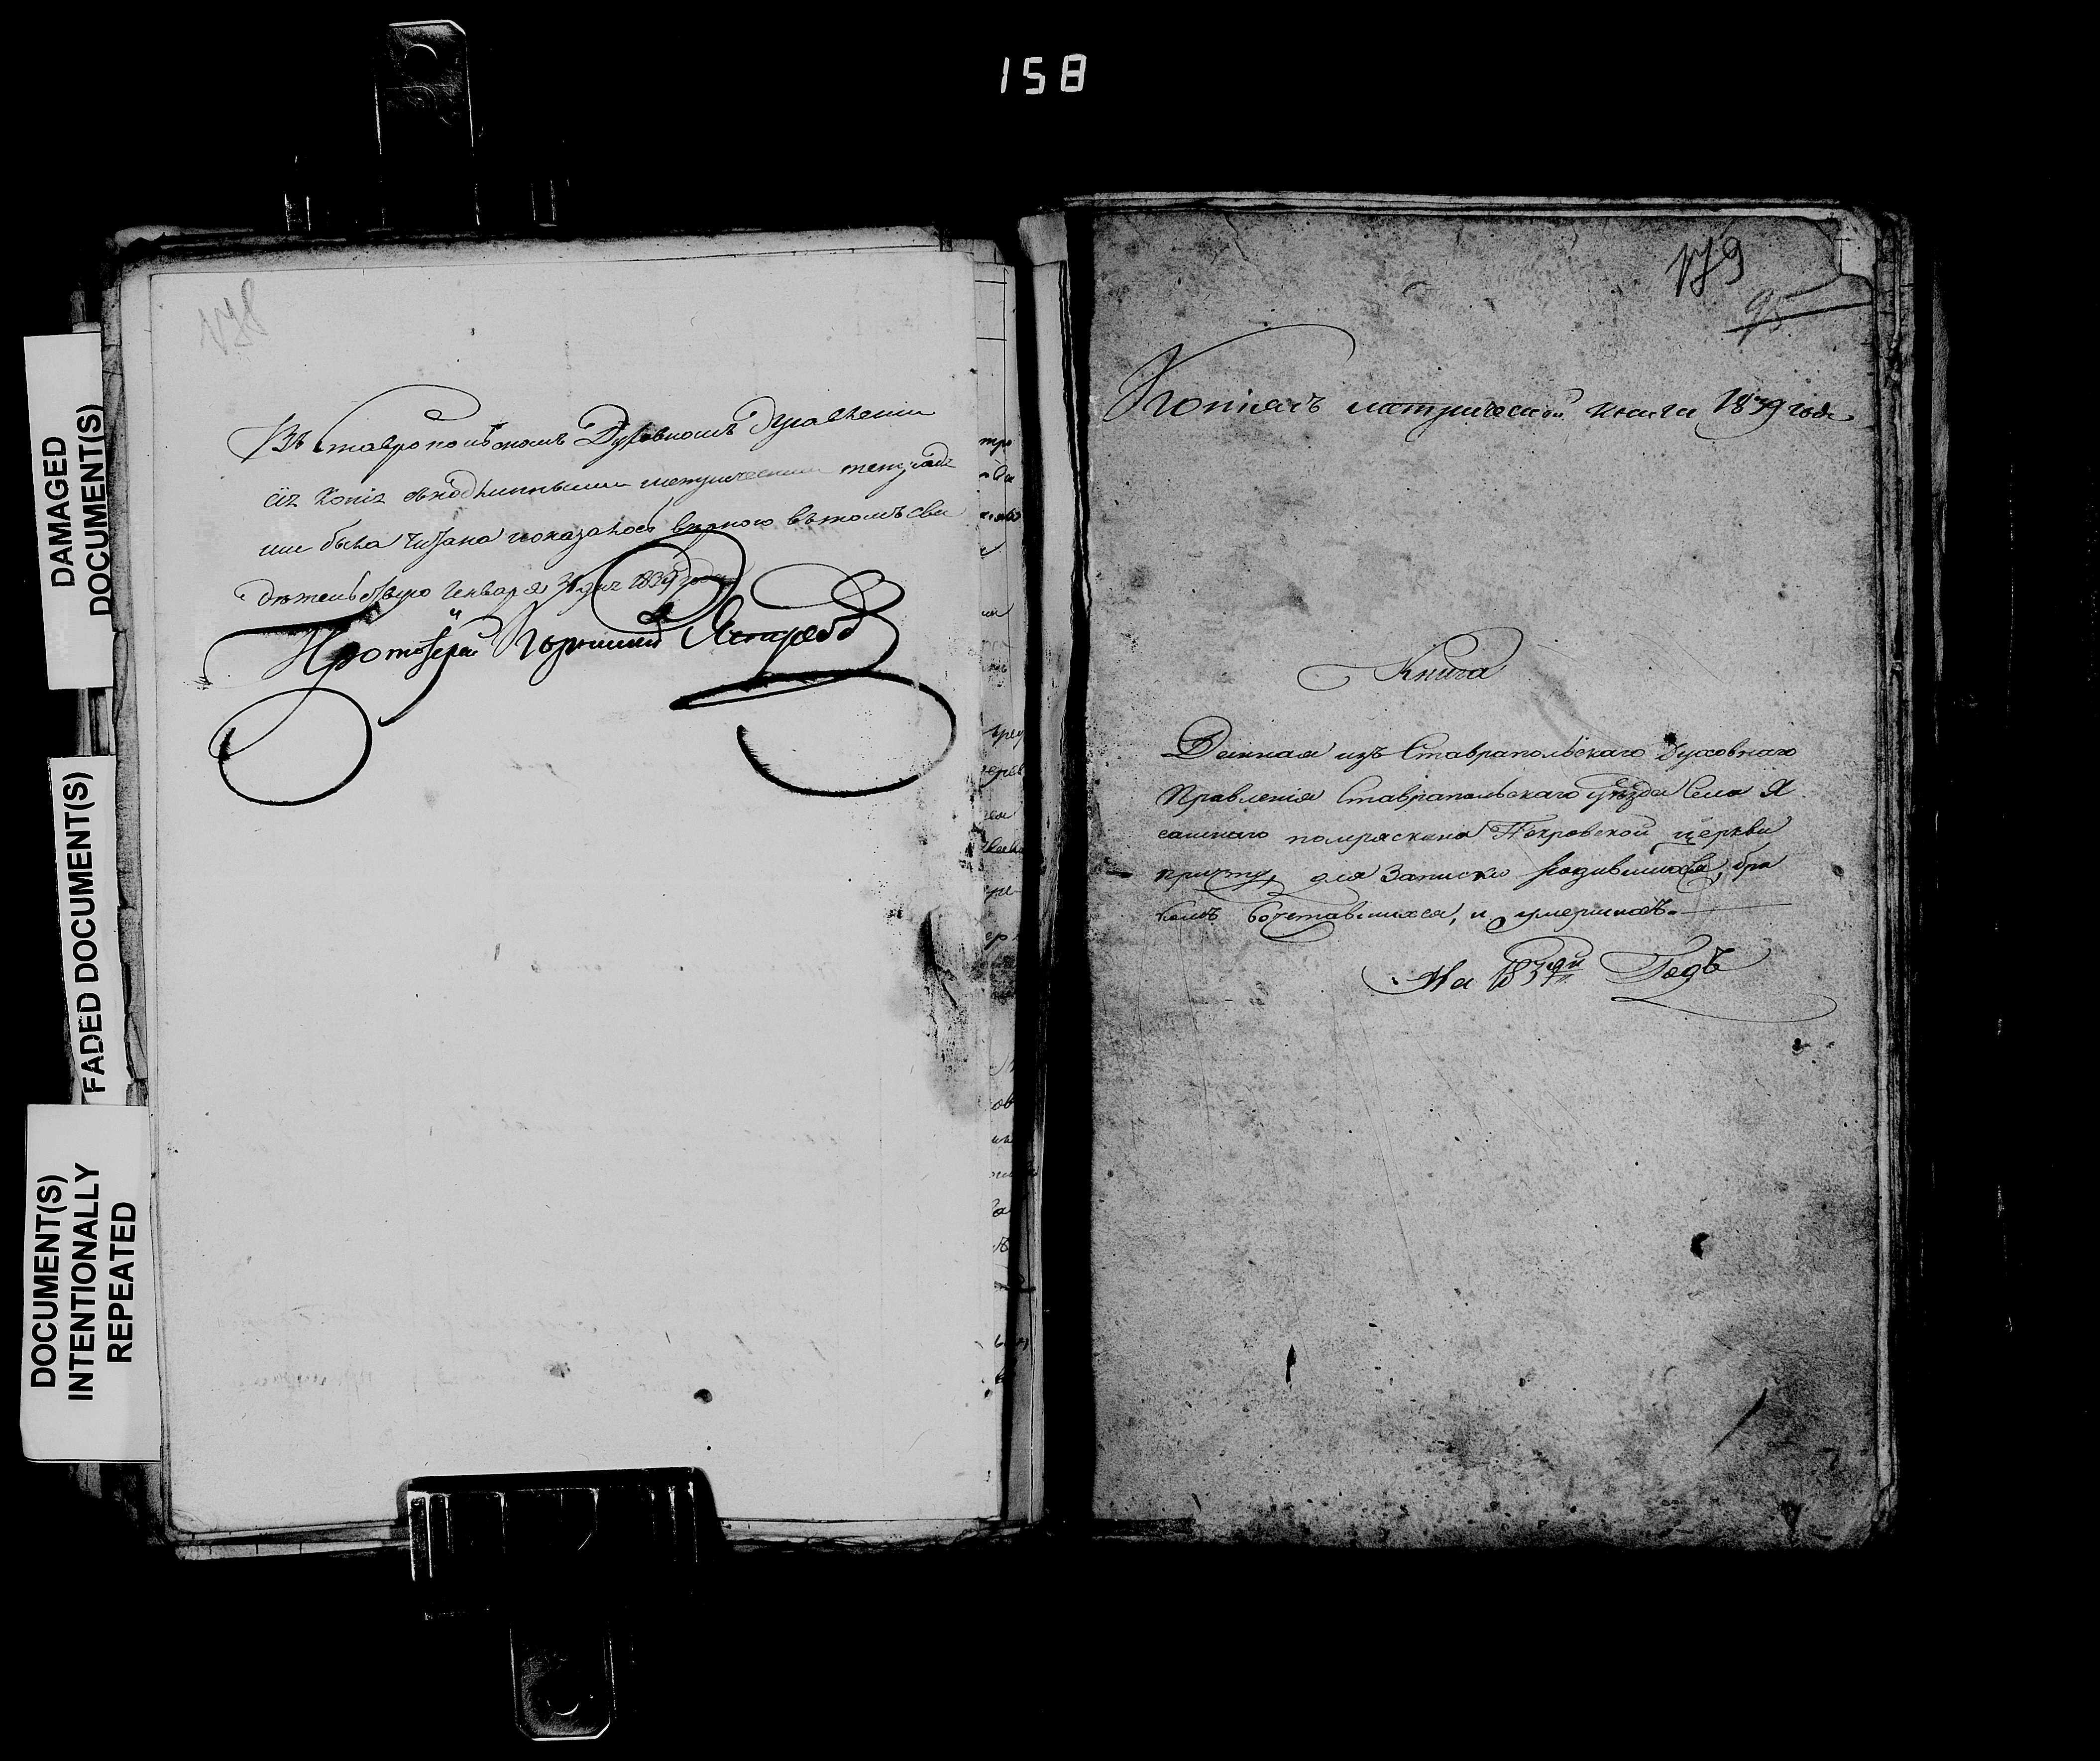 158
DAMAGED
DOCUMENT(S)
FADED DOCUMENT(S)
DOCUMENT(S)
INTENTIONALLY
REPEATED
178
Въ Ставропольскомъ Духовномъ Правленіи
сія копія съ подлинными метрическими тетрадя
ми была читана и оказалось вѣрною въ томъ сви
дѣтельствую Генваря 1839 года
Протоіерей
179
95
Копія съ метрической книги 1839 года
Книга
Данная изъ Ставрапольскаго Духовнаго
Правленія Ставрапольскаго уѣзда Села Я
сашнаго помряскина Покровской церкви
причту, для Записки родившихся, бра
комъ сочетавшихся, и умершихъ.
На 1839й Годъ